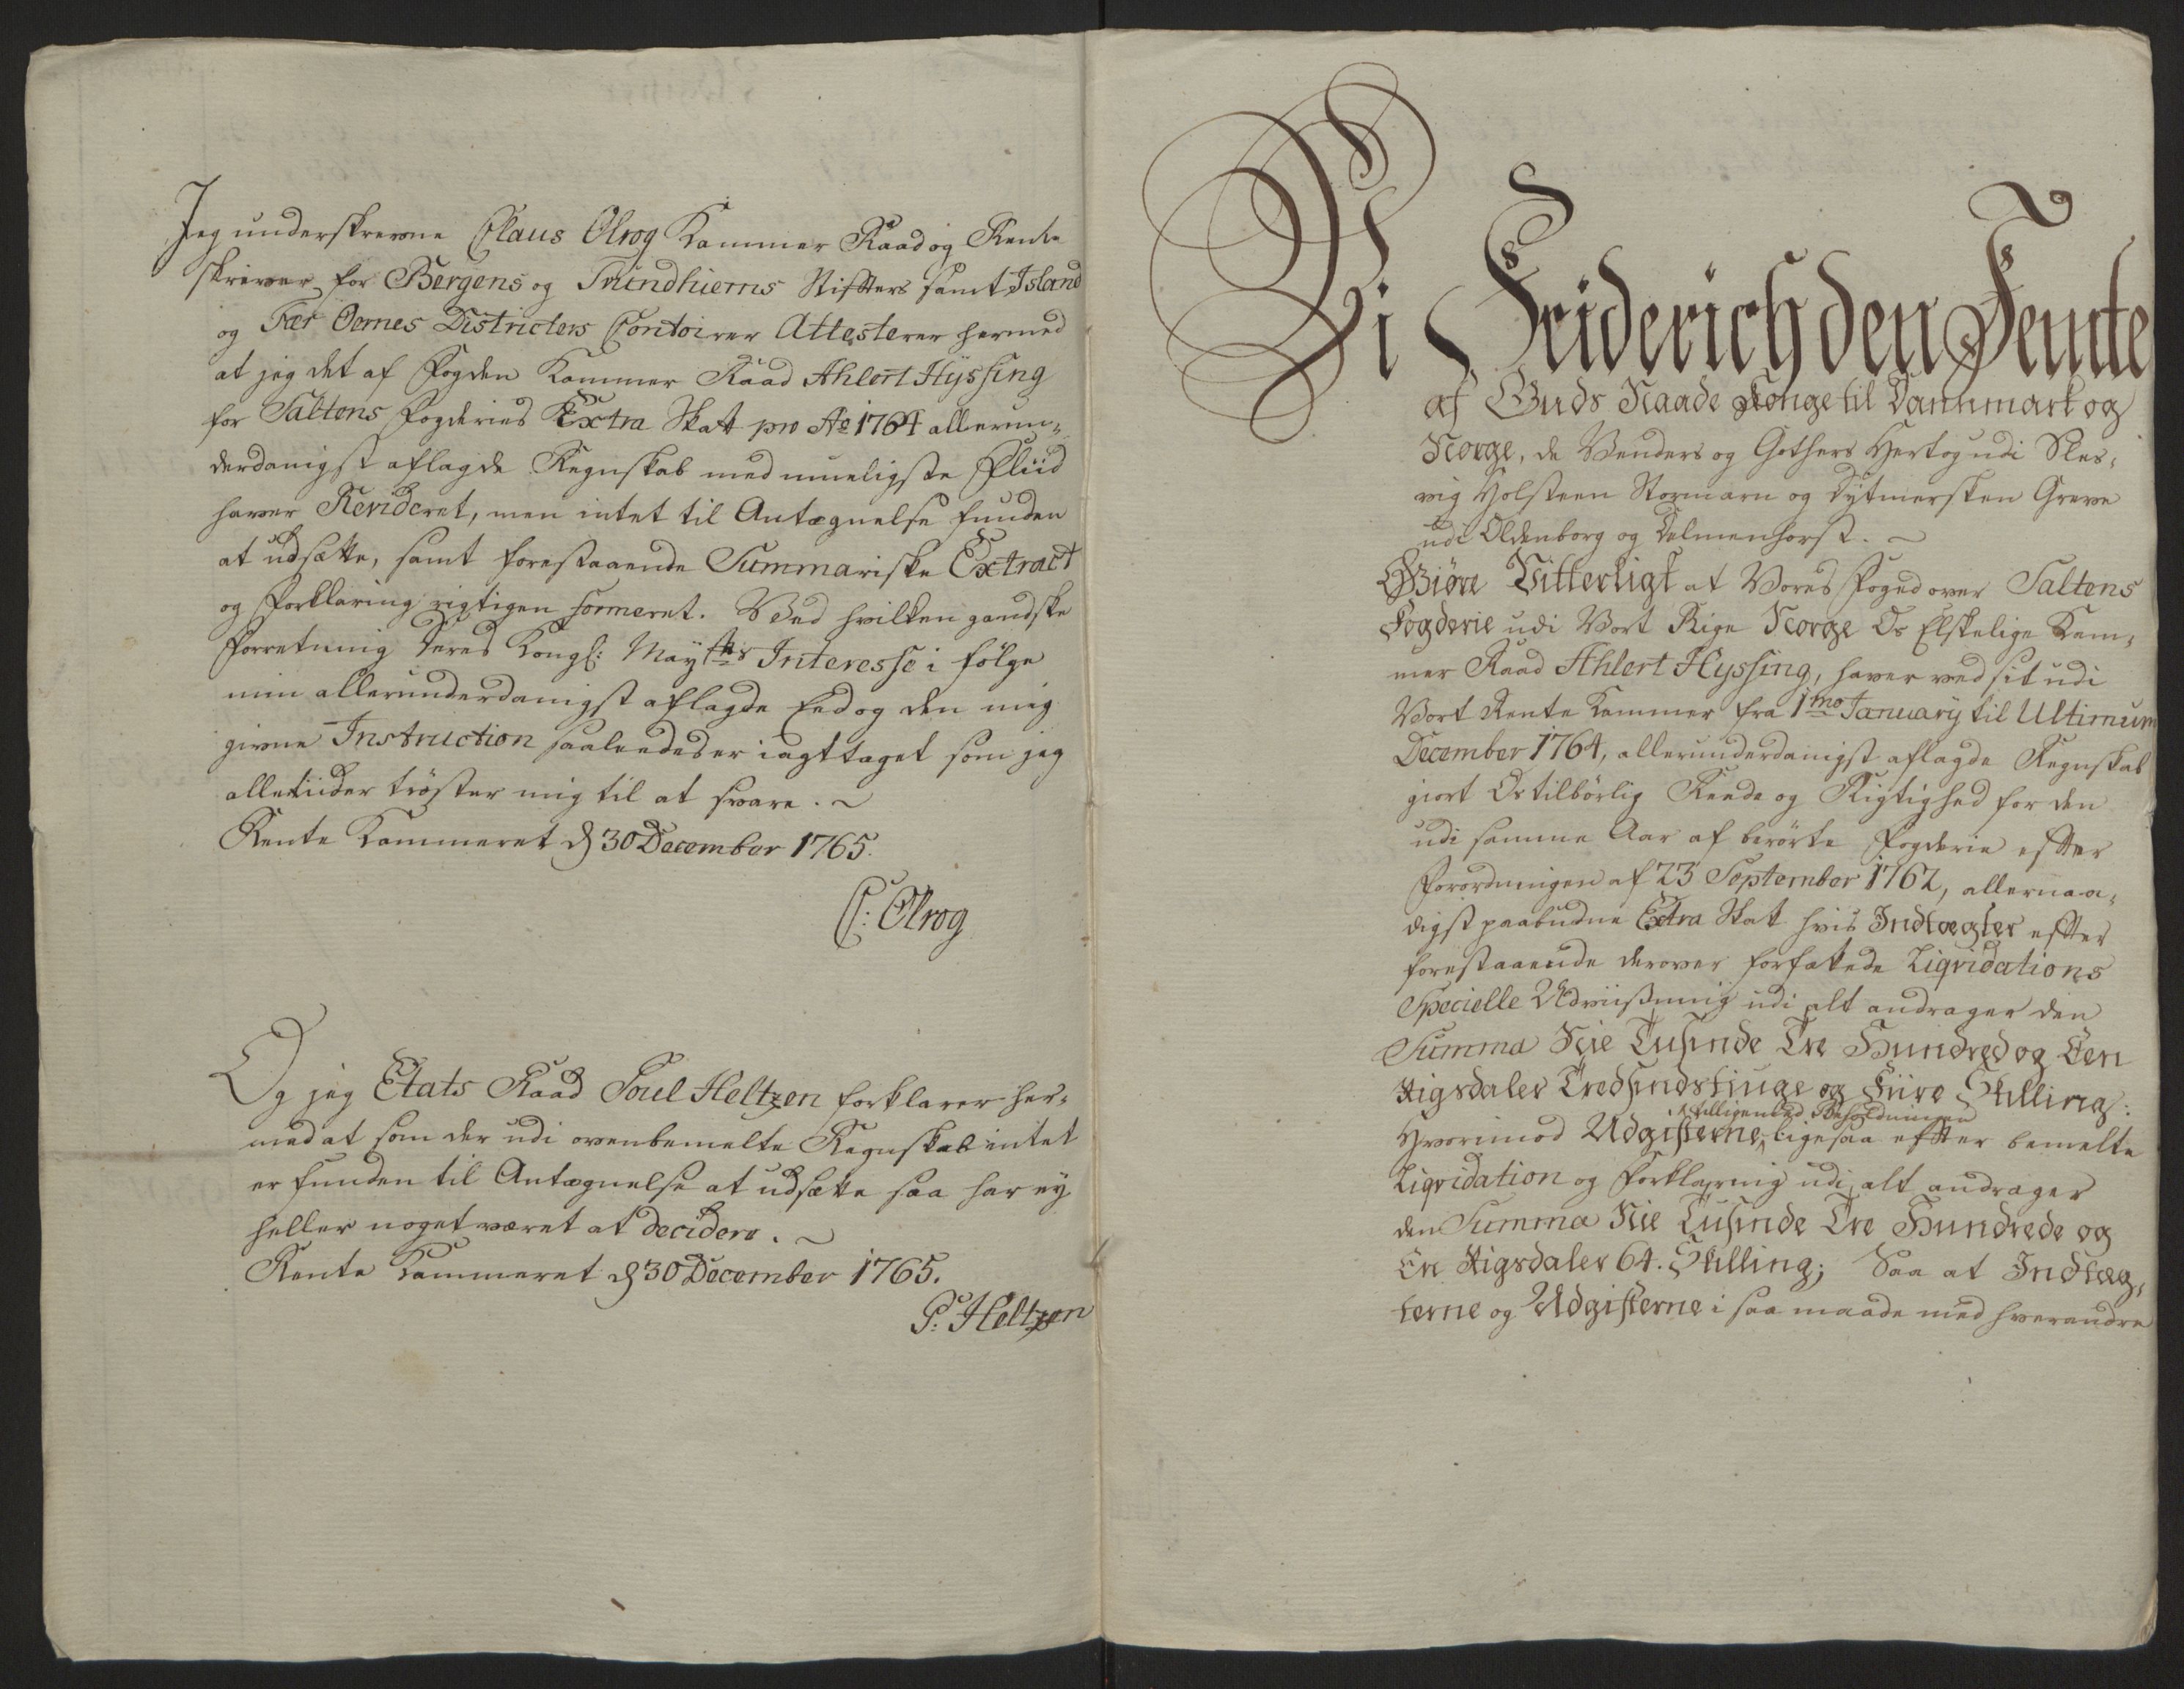 Jeg underskrevne Claus Olrog Kammer Raad og Rente
skriver for Bergens og Trundhiems Stifters samt Island
og Fær Öernes Districters Contoirer Attesterer hermed
at jeg det af Fogden Kammer Raad Ahlert Hyssing
for Saltens Fogderies Extra Skat pro Ao 1764 allerun-
derdanigst aflagde Regnskab med mueligste Fliid
haver Revideret, men intet til Antægnelse funden
at udsætte, samt forestaaende Summariske Extract
og Forklaring rigtigen formeret. Ved hvilken gandske
Forretning Deres Kongl: Mayts Interesse i følge
min allerunderdanigst aflagde Eed og den mig
givne Instruction saaledes er iagttaget som jeg
alletiider trøster mig til at svare.
Rente Kammeret d 30 December 1765.
C: Olrog
Og jeg Etats Raad Poul Heltzen forklarer her-
med at som der udi ovenbemelte Regnskab intet
er funden til Antægnelse at udsætte saa har ey
heller noget været at decidere.
Rente Kammeret d 30 December 1765.
P: Heltzen
Vi Friderich den Femte
af Guds Naade Konge til Dannmark og
Norge, de Venders og Gothers Hertog udi Sles-
vig Holsteen Stormarn og Dytmersken Greve
udi Oldenborg og Delmenhorst.
Giøre Vitterligt at Vores Foged over Saltens
Fogderie udi Vort Rige Norge Os Elskelige Kam-
mer Raad Ahlert Hyssing, haver ved sit udi
Vort Rente Kammer fra 1mo January til Ultimum
December 1764, allerunderdanigst aflagde Regnskab
giort Os tilbørlig Reede og Rigtighed for den
udi samme Aar af berørte Fogderie efter
Forordningen af 23 September 1762, allernaa-
digst paabudne Extra Skat hvis Indtægter efter
forestaaende derover forfattede Liqvidations
Specielle Udviisning udi alt andrager den
Summa Nie Tusinde Tre Hundred og Een
Rigsdaler Tredsindstiuge og Fiire Skilling:
Hvorimod Udgifterne, ligesaa efter bemelte
tilligemed Beholdningen
Liqvidation og Forklaring udi alt andrager
den Summa Nie Tusinde Tre Hundrede og
Een Rigsdaler 64. Skilling; Saa at Indtæg-
terne og Udgifterne i saa maade med hverandre